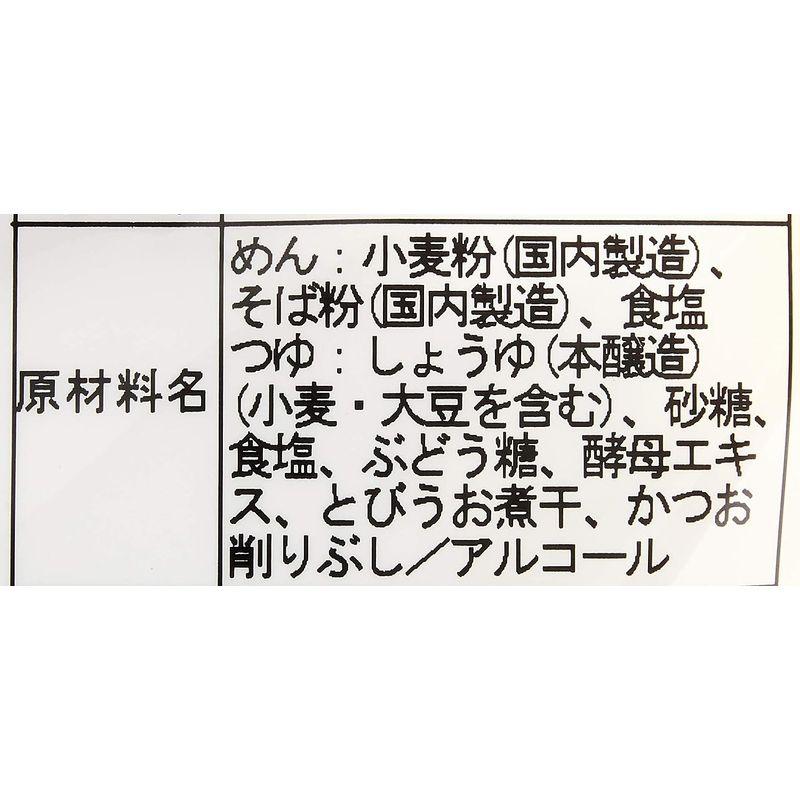 原材料名
めん：小麦粉(国内製造)、
そば粉(国内製造)、食塩
つゆ：しょうゆ(本醸造)
(小麦・大豆を含む)、砂糖、
食塩、ぶどう糖、酵母エキ
ス、とびうお煮干、かつお
削りぶし／アルコール